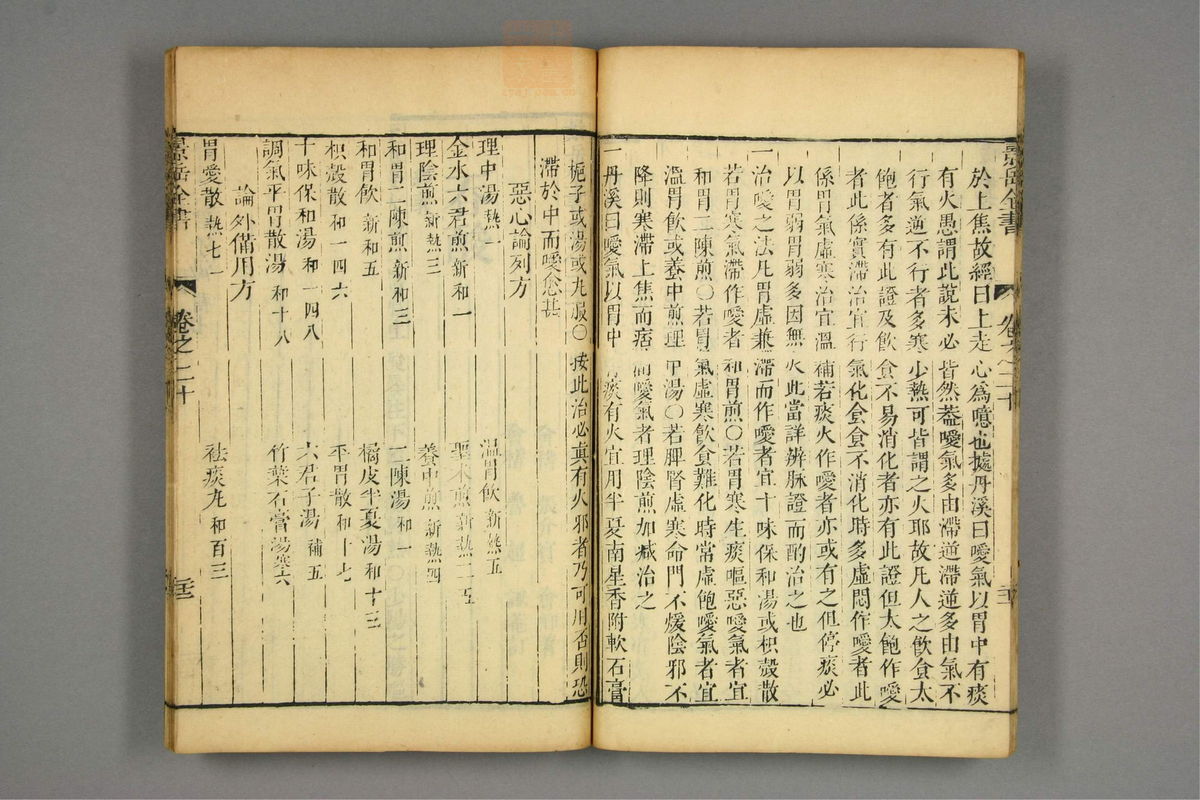 於上焦故經曰上走心爲噫也據丹溪曰噯氣以胃中有痰
有火愚謂此說未必皆然葢噯氣多由滯逆滯逆多由氣不
行氣逆不行者多寒少熱可皆謂之火耶故凡人之飲食太
飽者多有此證及飲食不易消化者亦有此證但太飽作噯
者此係實滯治宜行氣化食食不消化時多虛悶作噯者此
係胃氣虛寒治宜溫補若痰火作噯者亦或有之但停痰必
以胃弱胃弱多因無火此當詳辨脉證而酌治之也
一治噯之法凡胃虛兼滯而作噯者宜十味保和湯或枳殼散
若胃寒氣滯作噯者和胃煎○若胃寒生痰嘔惡噯氣者宜
和胃二陳煎○若胃氣虛寒飲食難化時常虛飽噯氣者宜
溫胃飲或養中煎理中湯○若脾腎虛寒命門不煖陰邪不
降則寒滯上焦而痞悶噯氣者理陰煎加減治之
一丹溪曰噯氣以胃中有痰有火宜用半夏南星香附軟石膏
景岳全書
卷之二十
梔子或湯或丸服○按此治必真有火邪者乃可用否則恐
滯於中而噯愈甚
惡心論列方
理中湯 熱一
溫胃飲 新熱五
金水六君煎 新和一
聖朮煎 新熱二五
理陰煎 新熱三
養中煎 新熱四
和胃二陳煎 新和三
二陳湯 和一
和胃飲 新和五
橘皮半夏湯 和十三
枳殼散 和一四六
平胃散 和十七
十味保和湯 和一四八
六君子湯 補五
調氣平胃散湯 和十八
竹葉石膏湯 寒六
論外備用方
胃愛散 熱七一
祛痰丸 和百三
景岳全書
卷之二十